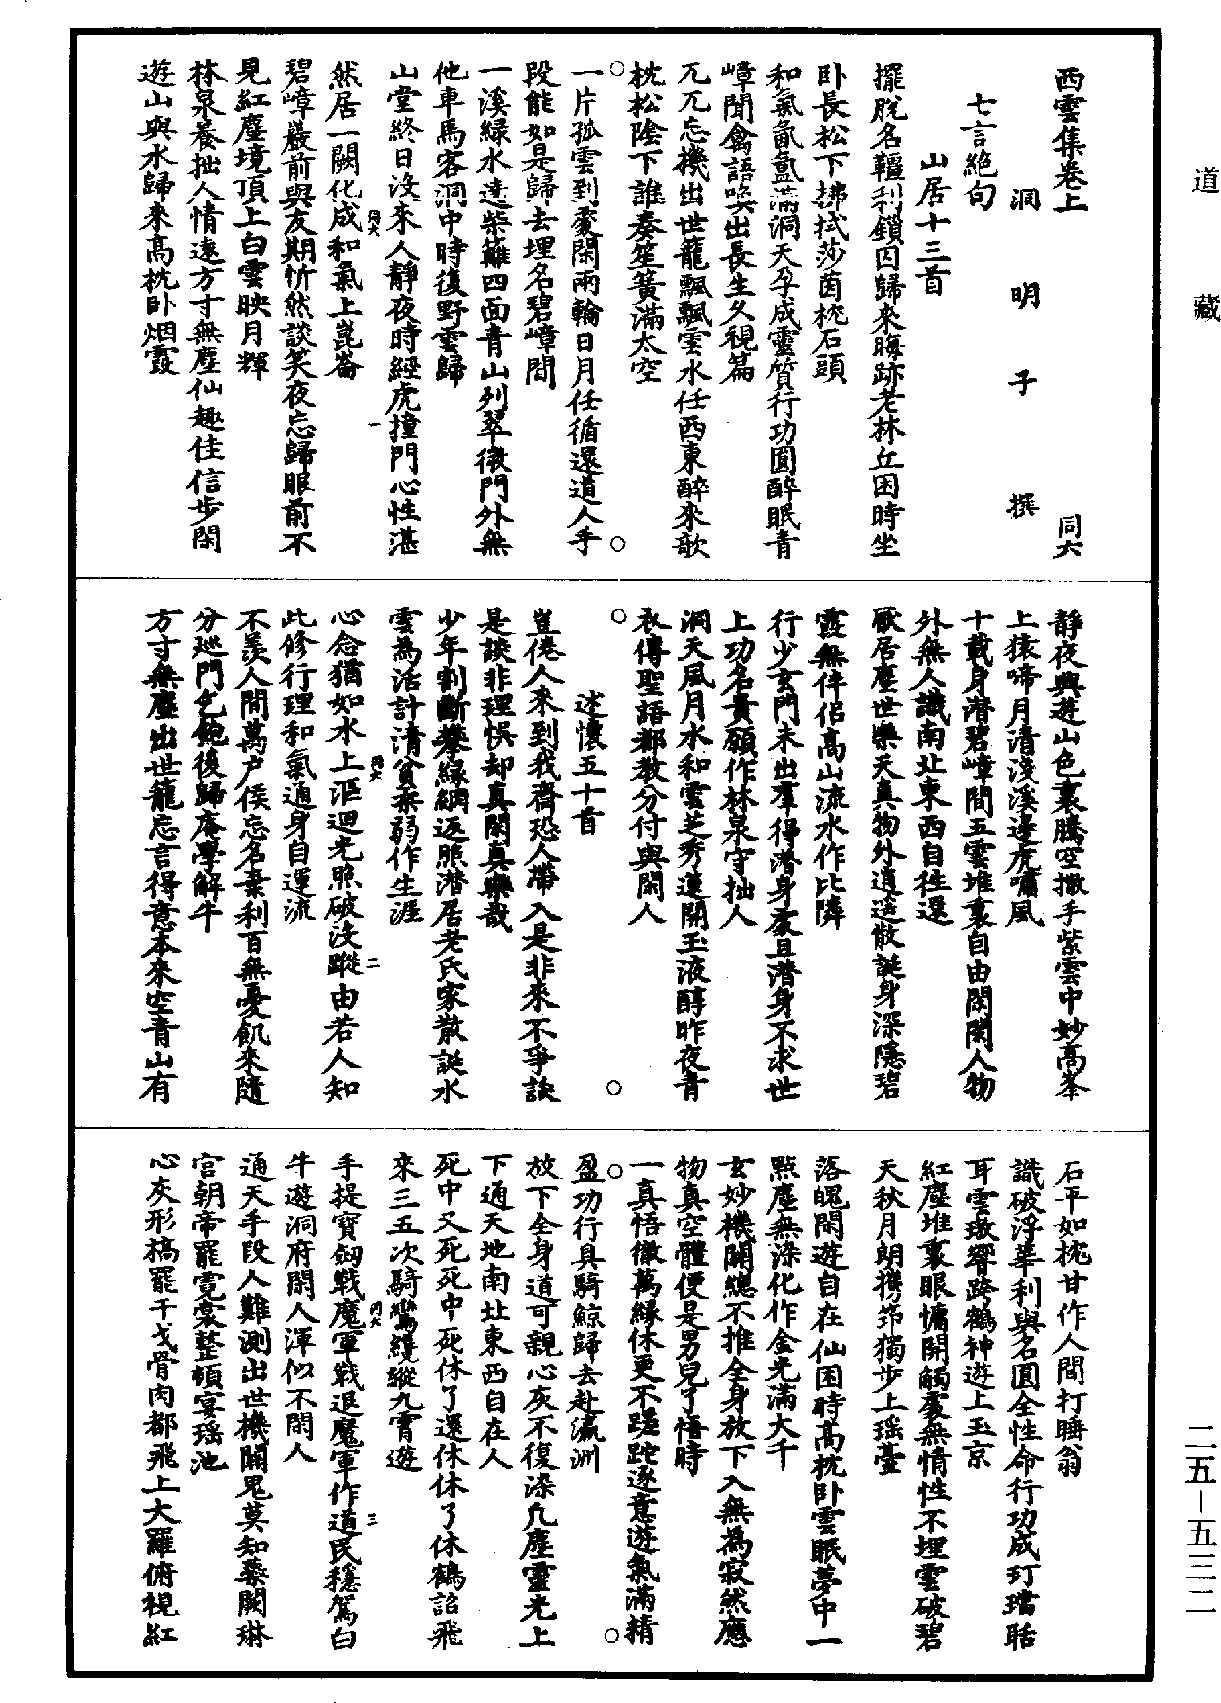 道藏
西雲集卷上　同六
洞明子撰
七言絕句
山居十三首
擺脫名韁利鎖囚歸來晦跡老林丘困時坐
卧長松下拂拭莎茵枕石頭
和氣氤氳滿洞天孕成靈質行功圓醉眠青
嶂聞禽語喚出長生久視篇
兀兀忘機出世籠飄飄雲水任西東醉來歌
枕松陰下誰奏笙簧滿太空
一片孤雲到處閑兩輪日月任循還道人手
段能如是歸去埋名碧嶂間
一溪緑水遶柴籬四面青山列翠微門外無
他車馬客洞中時復野雲歸
山堂終日没來人靜夜時經虎撞門心性湛
然居一闕化成和氣上崑崙
碧嶂巖前與友期忻然談笑夜忘歸眼前不
見紅塵境頂上白雲映月輝
林泉養拙人情遠方寸無塵仙趣佳信步閑
遊山與水歸來高枕卧烟霞
靜夜興遊山色裏騰空撒手紫雲中妙高峯
上猿啼月清淺溪邊虎嘯風
十載身潜碧嶂間五雲堆裏自由閑閑人物
外無人識南北東西自徃還
厭居塵世樂天真物外逍遥散誕身深隱碧
霞無伴侣高山流水作比隣
行少玄門未出羣得潜身處且潜身不求世
上功名貴願作林泉守拙人
洞天風月水和雲芝秀蓮開玉液醇昨夜青
衣傳聖語都教分付與閑人
述懷五十首
豈倦人來到我齋恐人帶入是非來不爭談
是談非理悮却真閑真樂哉
少年割斷攀緣網返照潜居老氏家散誕水
雲為活計清貧柔弱作生涯
心念猶如水上漚迴光照破没蹤由若人知
此修行理和氣通身自運流
不羨人間萬户侯忘名棄利百無憂飢來隨
分廵門乞飽後歸庵學解牛
方寸無塵出世籠忘言得意本來空青山有
石平如枕甘作人間打睡翁
識破浮華利與名圓全性命行功成玎璫聒
耳雲璈響跨鶴神遊上玉京
紅塵堆裏眼慵開觸處無情性不埋雲破碧
天秋月朗携筇獨步上瑶臺
落魄閑遊自在仙困時高枕卧雲眠夢中一
點塵無染化作金光滿大千
玄妙機關總不推全身放下入無為寂然應
物真空體便是男兒了悟時
一真悟徹萬緣休更不蹉跎逐意遊氣滿精
盈功行具騎鯨歸去赴瀛洲
放下全身道可親心灰不復染凡塵靈光上
下通天地南北東西自在人
死中又死死中死休了還休休了休鶴詔飛
來三五次騎鸞纔縱九霄遊
手提寶劒戰魔軍戰退魔軍作道民穩駕白
牛遊洞府閑人渾似不閑人
通天手段人難測出世機關鬼莫知蘂闕琳
宫朝帝罷霓裳整頓宴瑶池
心灰形槁罷干戈骨肉都飛上大羅俯視紅
二五－五三二